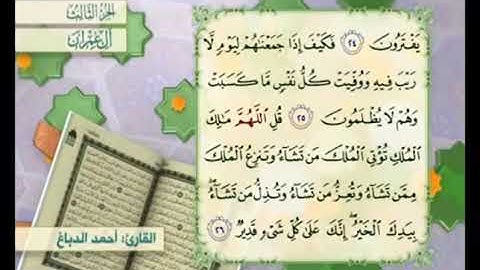 الجزء الثالث
آل عمران
يَفْتَرُونَ ٢٤ فَكَيْفَ إِذَا جَمَعْنَٰهُمْ لِيَوْمٍ لَّا
رَيْبَ فِيهِ وَوُفِّيَتْ كُلُّ نَفْسٍ مَّا كَسَبَتْ
وَهُمْ لَا يُظْلَمُونَ ٢٥ قُلِ ٱللَّهُمَّ مَٰلِكَ
ٱلْمُلْكِ تُؤْتِى ٱلْمُلْكَ مَن تَشَآءُ وَتَنزِعُ ٱلْمُلْكَ
مِمَّن تَشَآءُ وَتُعِزُّ مَن تَشَآءُ وَتُذِلُّ مَن تَشَآءُ ۖ
بِيَدِكَ ٱلْخَيْرُ ۖ إِنَّكَ عَلَىٰ كُلِّ شَىْءٍ قَدِيرٌ ٢٦
القارئ: أحمد الدباغ